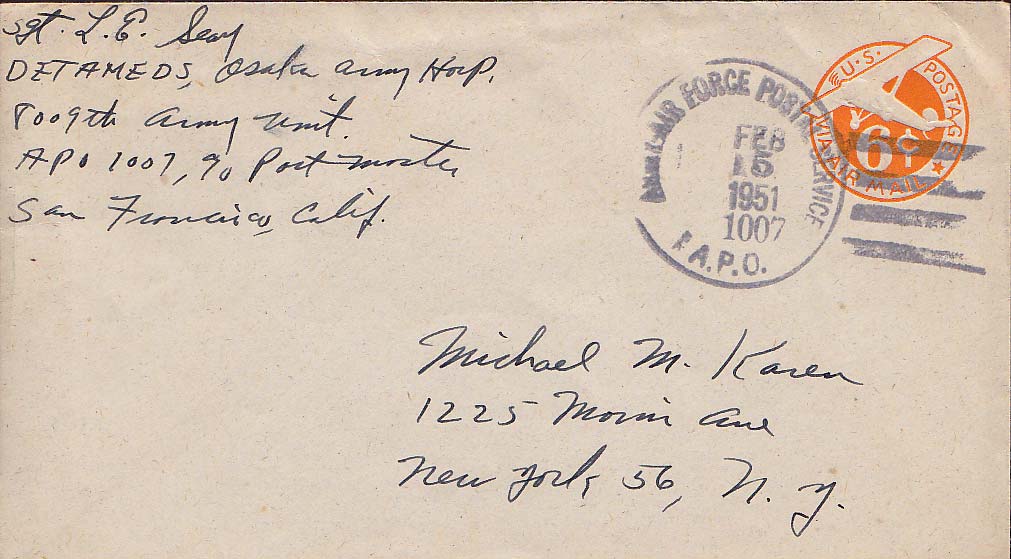 Sgt. L. E. Seay
DETAMEDS, Osaka Army Hosp.
8009th Army Unit.
APO 1007, c/o Post Master
San Francisco, Calif.
AIR FORCE POSTAL SERVICE
FEB
15
1951
1007
A.P.O.
U.S. POSTAGE
6¢
VIA AIR MAIL
Michael M. Karen
1225 Ave
New York, 56, N. Y.